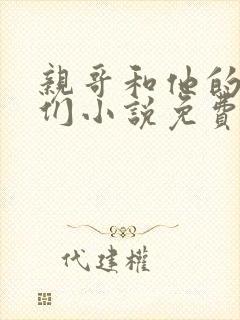 親哥和他的
们小說免費
代建權